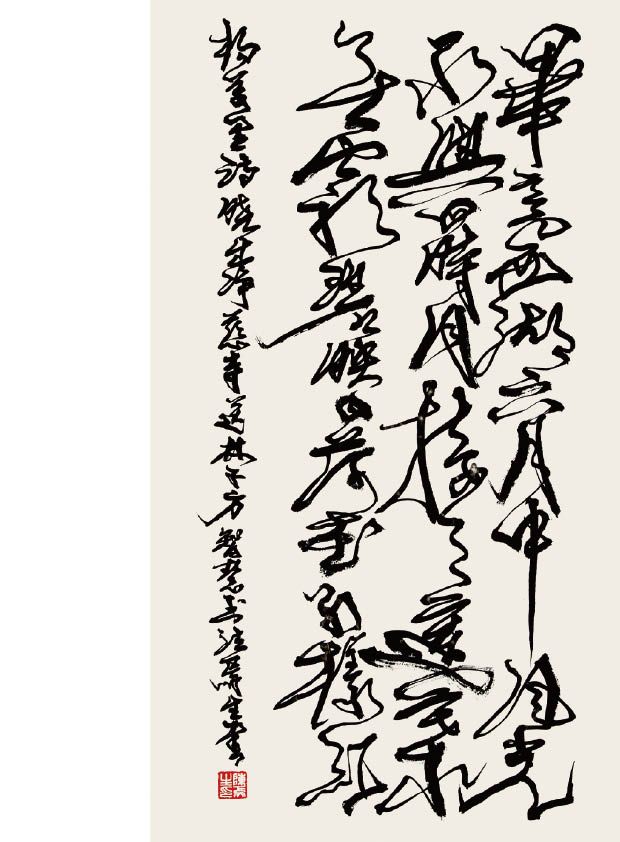 畢竟西湖六月中風光
不與四時同接天蓮葉
無窮碧映日荷花別樣紅
楊萬里詩曉出淨慈寺送林子方